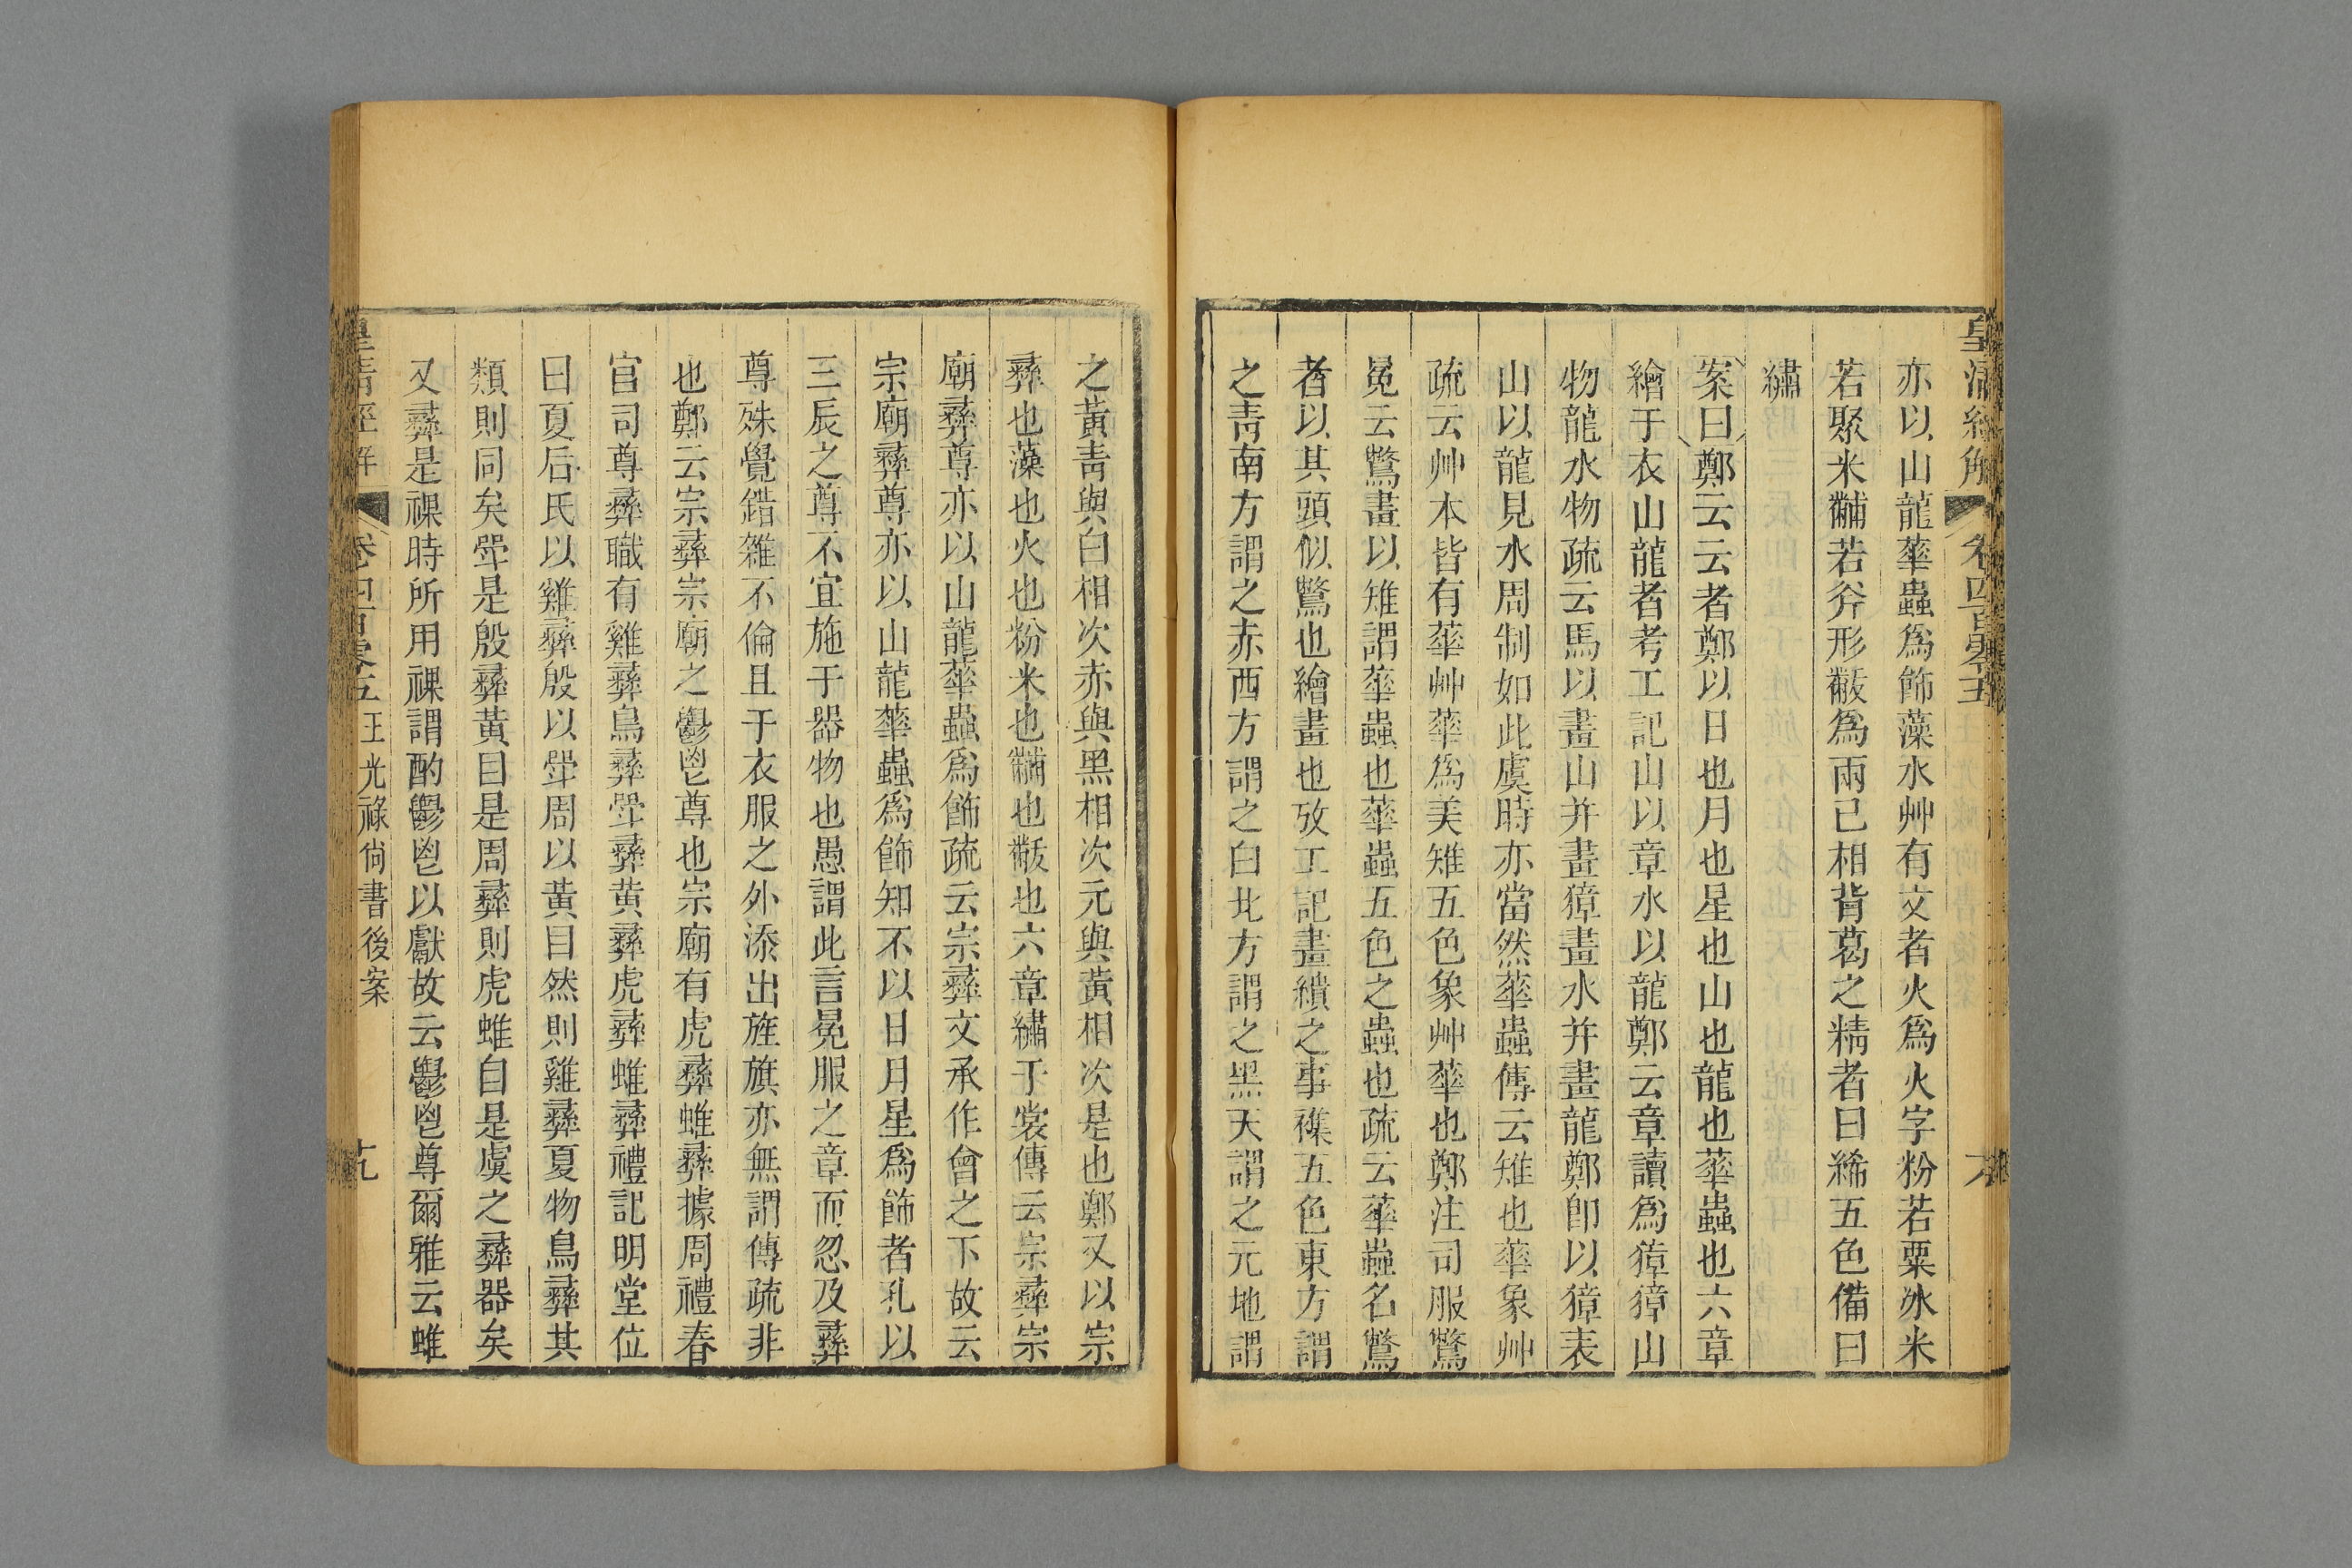 皇清經解 卷四百零五
亦以山龍華蟲爲飾藻水艸有文者火爲火字粉若粟冰米
若聚米黼若斧形黻爲兩已相背葛之精者曰絺五色備曰
繡
案曰鄭云云者鄭以日也月也星也山也龍也華蟲也六章
繪于衣山龍者考工記山以章水以龍鄭云章讀爲獐獐山
物龍水物疏云馬以畫山并畫獐畫水并畫龍鄭卽以獐表
山以龍見水周制如此虞時亦當然華蟲傳云雉也華象艸
疏云艸木皆有華艸華爲美雉五色象艸華也鄭注司服鷩
冕云鷩畫以雉謂華蟲也華蟲五色之蟲也疏云華蟲名鷩
者以其頭似鷩也繪畫也攷工記畫繢之事襍五色東方謂
之青南方謂之赤西方謂之白北方謂之黑天謂之元地謂
之黃青與白相次赤與黑相次元與黃相次是也鄭又以宗
彝也藻也火也粉米也黼也黻也六章繡于裳傳云宗彝宗
廟彝尊亦以山龍華蟲爲飾疏云宗彝文承作會之下故云
宗廟彝尊亦以山龍華蟲爲飾知不以日月星爲飾者孔以
三辰之尊不宜施于器物也愚謂此言冕服之章而忽及彝
尊殊覺錯雜不倫且于衣服之外添出旌旗亦無謂傳疏非
也鄭云宗彝宗廟之鬱鬯尊也宗廟有虎彝蜼彝據周禮春
官司尊彝職有雞彝鳥彝斝彝黃彝虎彝蜼彝禮記明堂位
曰夏后氏以雞彝殷以斝周以黃目然則雞彝夏物鳥彝其
類則同矣斝是殷彝黃目是周彝則虎蜼自是虞之彝器矣
又彝是祼時所用祼謂酌鬱鬯以獻故云鬱鬯尊爾雅云蜼
皇清經解 卷四百零五 王光祿尙書後案 十九